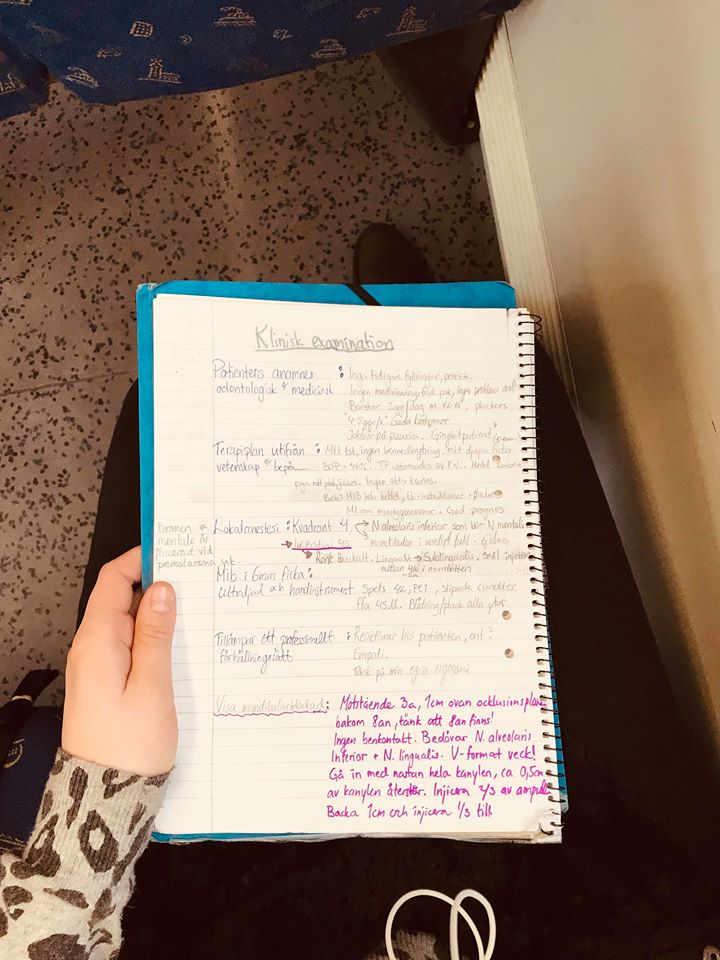 Klinisk examination
Patientens anamnes : Inga tidigare fyllningar,
odontologisk & medicinsk Ingen medicinering, frisk pat, inga problem
Borstar 2ggr/dag m
"4-5 ggr/v." Goda kostvanor
Jobbar på pizzeria. Gingivitpatient
Terapiplan utifrån : Mtl tst, ingen bennedbrytning, mtl djupa fickor
vetenskap & bepå. BOP = 46%. TP utformades av
pga mtl plack, Ingen aktiv karies.
Beh: MIB hela bettet, tb-instruktioner +
MI om munhygienvanor. God prognos
Lokalanestesi : Kvadrant 4, N alveolaris inferior som blir N mentale
Infiltration 45 mandibular i vanligt fall - ej idag
Foramen
mentale är
placerad vid
premolarerna uk.
Buckalt. Lingualt → Sublingualis, små injektion
mellan 4a i munbotten
Mib i 6mm ficka :
Ultraljud och handinstrument Spets
ffa 45.dl. Blödning/plack alla ytor
Tillämpar ett professionellt : Reaktioner hos patienten, ont?
förhållningssätt Empati.
Tänk på min egna ergonomi
Visa mandibularblockad : Motstående 3a, 1cm ovan ocklusionsplanet
bakom 8an, tänk att 8an finns!
Ingen benkontakt. Bedövar N. alveolaris
Inferior + N. lingualis. V-format veck!
Gå in med nästan hela kanylen, ca 0,5cm
av kanylen återstår. Injicera 2/3 av ampull
Backa 1cm och injicera 1/3 till